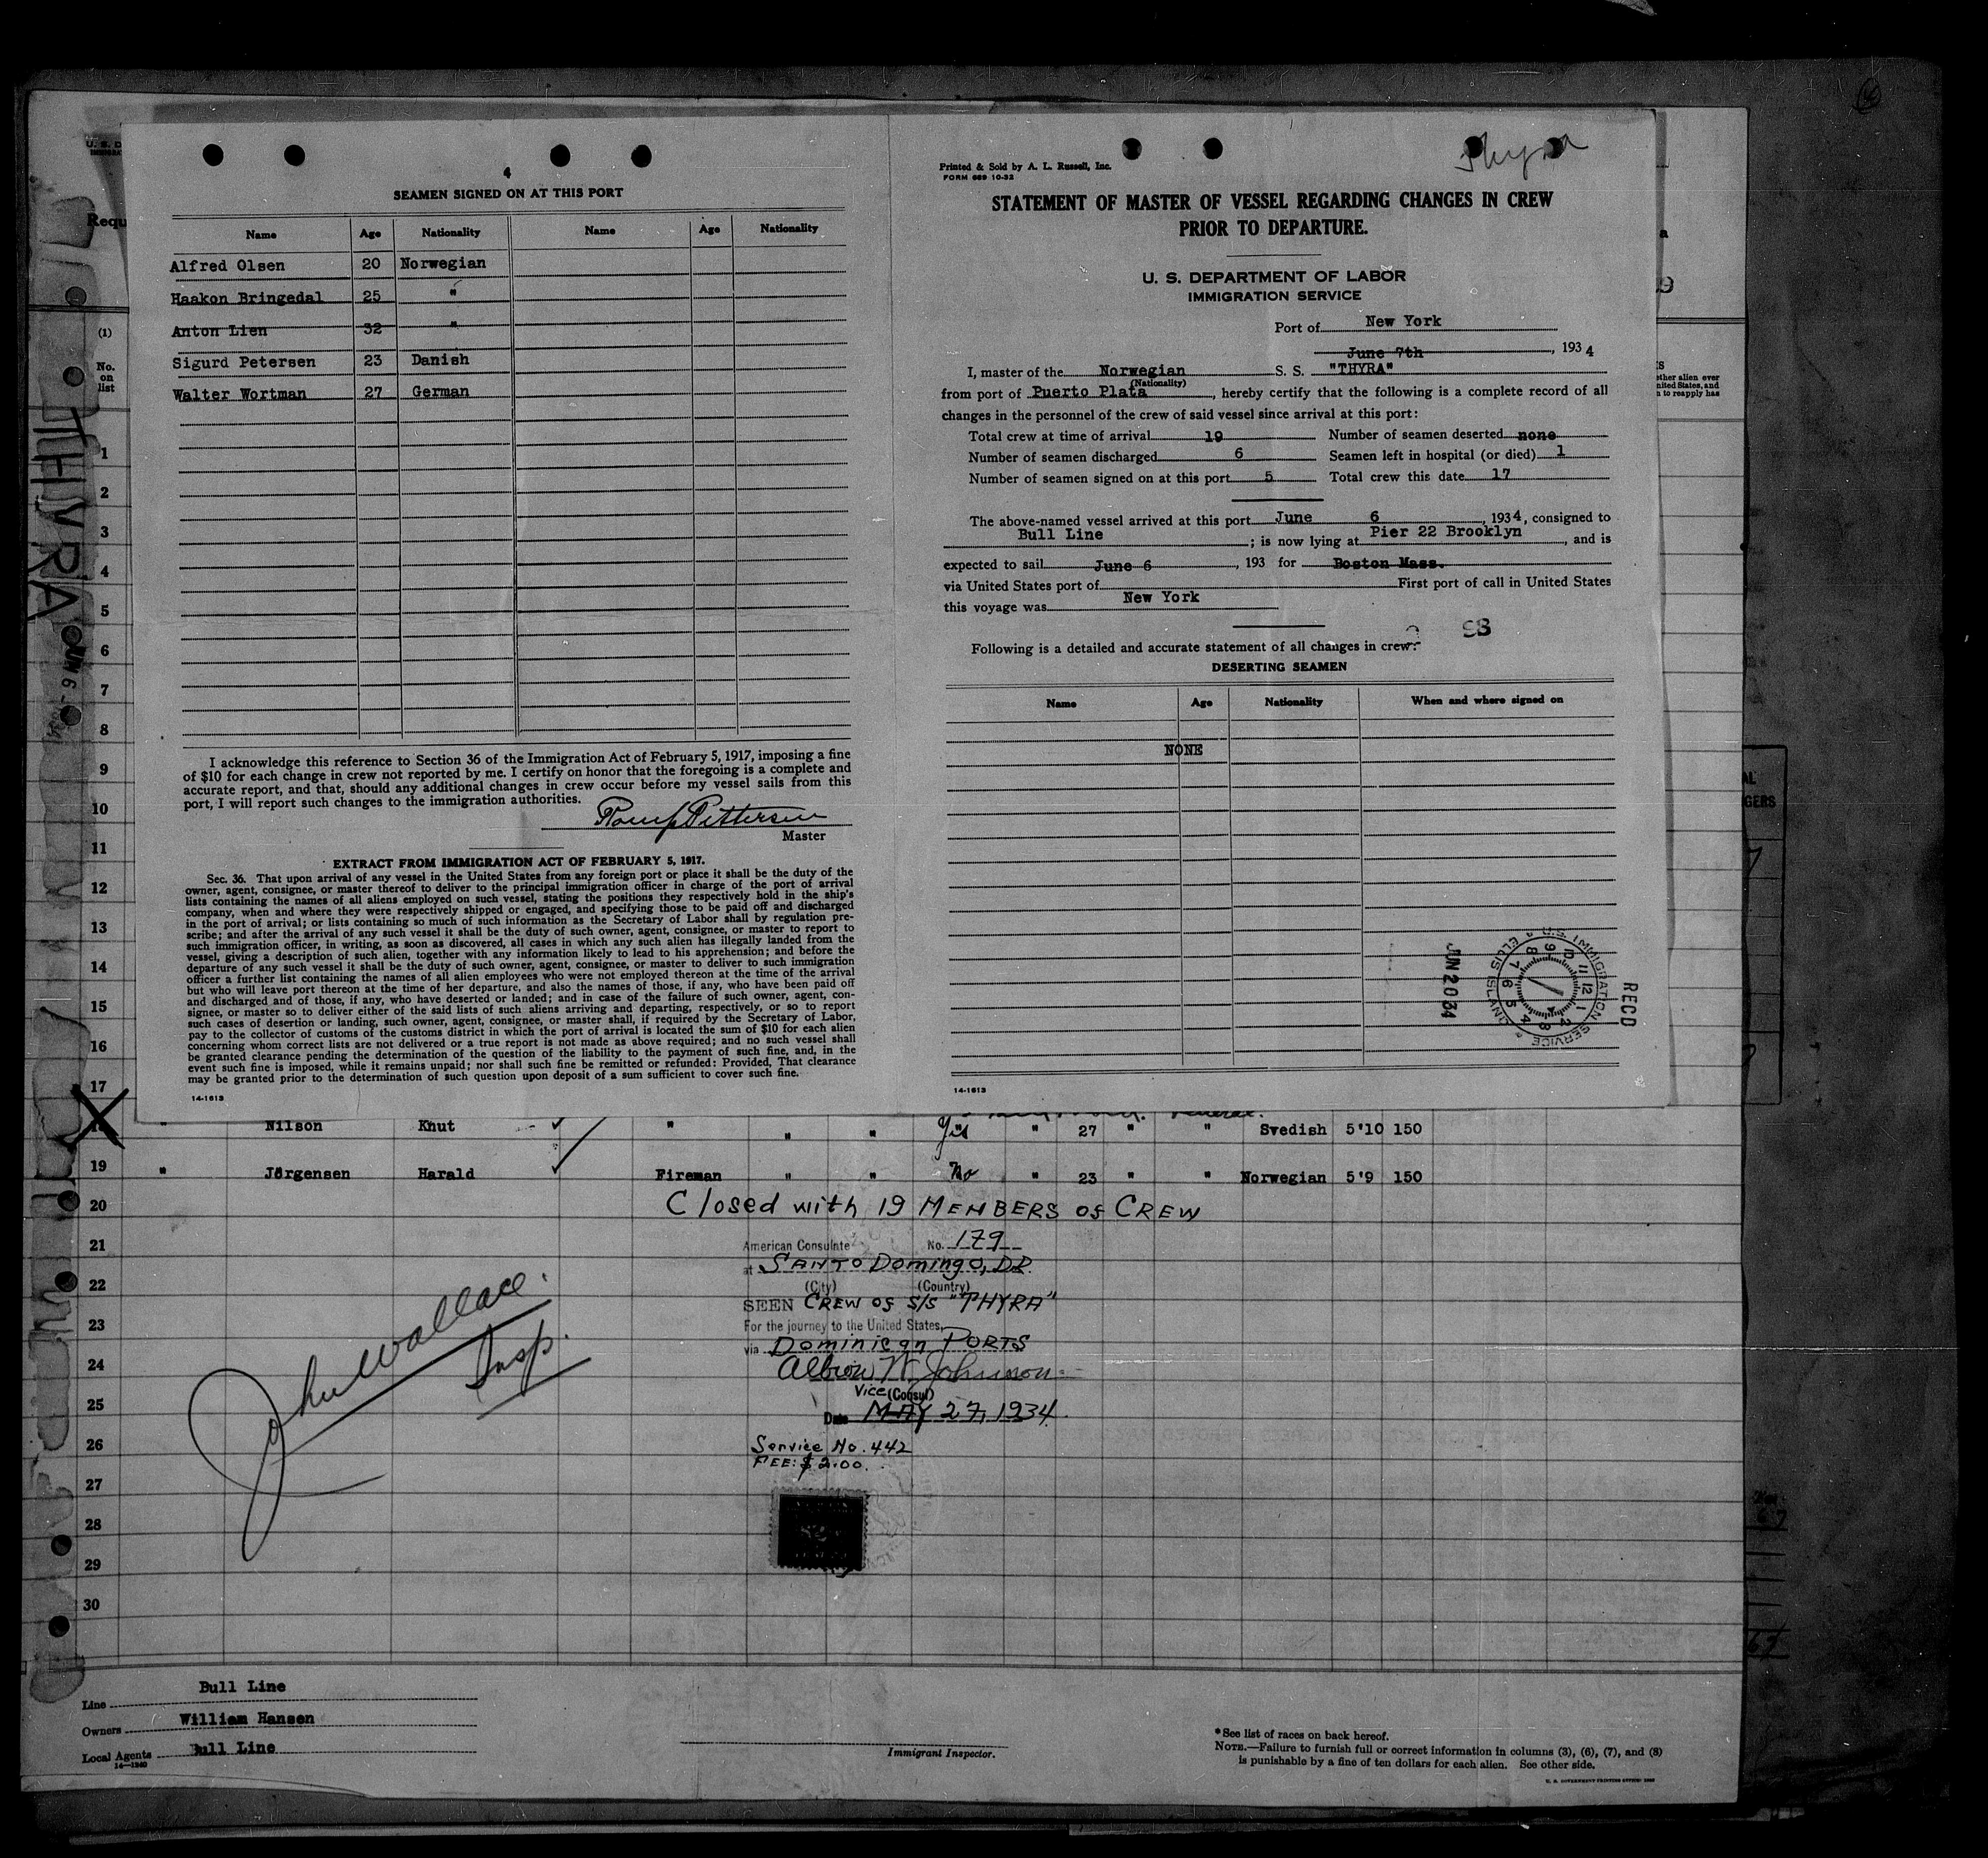 4
SEAMEN SIGNED ON AT THIS PORT
Name Age Nationality Name Age Nationality
Alfred Olsen 20 Norwegian
Haakon Bringedal 25 "
Anton Lien 32 "
Sigurd Petersen 23 Danish
Walter Wortman 27 German
I acknowledge this reference to Section 36 of the Immigration Act of February 5, 1917, imposing a fine
of $10 for each change in crew not reported by me. I certify on honor that the foregoing is a complete and
accurate report, and that, should any additional changes in crew occur before my vessel sails from this
port, I will report such changes to the immigration authorities.
Pettersen
Master
EXTRACT FROM IMMIGRATION ACT OF FEBRUARY 5, 1917.
Sec. 36. That upon arrival of any vessel in the United States from any foreign port or place it shall be the duty of the
owner, agent, consignee, or master thereof to deliver to the principal immigration officer in charge of the port of arrival
lists containing the names of all aliens employed on such vessel, stating the positions they respectively hold in the ship's
company, when and where they were respectively shipped or engaged, and specifying those to be paid off and discharged
in the port of arrival; or lists containing so much of such information as the Secretary of Labor shall by regulation pre-
scribe; and after the arrival of any such vessel it shall be the duty of such owner, agent, consignee, or master to report to
such immigration officer, in writing, as soon as discovered, all cases in which any such alien has illegally landed from the
vessel, giving a description of such alien, together with any information likely to lead to his apprehension; and before the
departure of any such vessel it shall be the duty of such owner, agent, consignee, or master to deliver to such immigration
officer a further list containing the names of all alien employees who were not employed thereon at the time of the arrival
but who will leave port thereon at the time of her departure, and also the names of those, if any, who have been paid off
and discharged and of those, if any, who have deserted or landed; and in case of the failure of such owner, agent, con-
signee, or master so to deliver either of the said lists of such aliens arriving and departing, respectively, or so to report
such cases of desertion or landing, such owner, agent, consignee, or master shall, if required by the Secretary of Labor,
pay to the collector of customs of the customs district in which the port of arrival is located the sum of $10 for each alien
concerning whom correct lists are not delivered or a true report is not made as above required; and no such vessel shall
be granted clearance pending the determination of the question of the liability to the payment of such fine, and, in the
event such fine is imposed, while it remains unpaid; nor shall such fine be remitted or refunded: Provided, That clearance
may be granted prior to the determination of such question upon deposit of a sum sufficient to cover such fine.
14-1613
Thyra
Printed & Sold by A. L. Russell, Inc.
FORM 689 10-32
STATEMENT OF MASTER OF VESSEL REGARDING CHANGES IN CREW
PRIOR TO DEPARTURE.
U. S. DEPARTMENT OF LABOR
IMMIGRATION SERVICE
Port of New York
June 7th, 1934
I, master of the Norwegian S. S. "THYRA"
(Nationality)
from port of Puerto Plata, hereby certify that the following is a complete record of all
changes in the personnel of the crew of said vessel since arrival at this port:
Total crew at time of arrival 19 Number of seamen deserted none
Number of seamen discharged 6 Seamen left in hospital (or died) 1
Number of seamen signed on at this port 5 Total crew this date 17
The above-named vessel arrived at this port June 6, 1934, consigned to
Bull Line; is now lying at Pier 22 Brooklyn, and is
expected to sail June 6, 193 for Boston Mass.
via United States port of First port of call in United States
this voyage was New York
98
Following is a detailed and accurate statement of all changes in crew:
DESERTING SEAMEN
Name Age Nationality When and where signed on
NONE
RECD
U.S. IMMIGRATION SERVICE * ELLIS ISLAND *
12 1 2 3 4 5 6 7 8 9 10 11
JUN 20 34
14-1613
U. S. D
Requ
(1)
No.
on
list
THYRA
JUN 6
1
2
3
4
5
6
7
8
9
10
11
12
13
14
15
16
17
" Nilson Knut " " " Yes " 27 " " Swedish 5'10 150
19 " Jörgensen Harald Fireman " " No " 23 " " Norwegian 5'9 150
20 Closed with 19 MEMBERS of CREW
21
22
23
24
25
26
27
28
29
30
John Wallace
Insp.
American Consulate No. 179
at SANTO Domingo, D.R.
(City) (Country)
SEEN CREW OF S/S "THYRA"
For the journey to the United States,
via Dominican PORTS
Albion W. Johnson
Vice (Consul)
Date MAY 27, 1934
Service No. 442
FEE: $2.00.
Line Bull Line
Owners William Hansen
Local Agents Bull Line
14-1240
Immigrant Inspector.
*See list of races on back hereof.
NOTE.—Failure to furnish full or correct information in columns (3), (6), (7), and (8)
is punishable by a fine of ten dollars for each alien. See other side.
U. S. GOVERNMENT PRINTING OFFICE